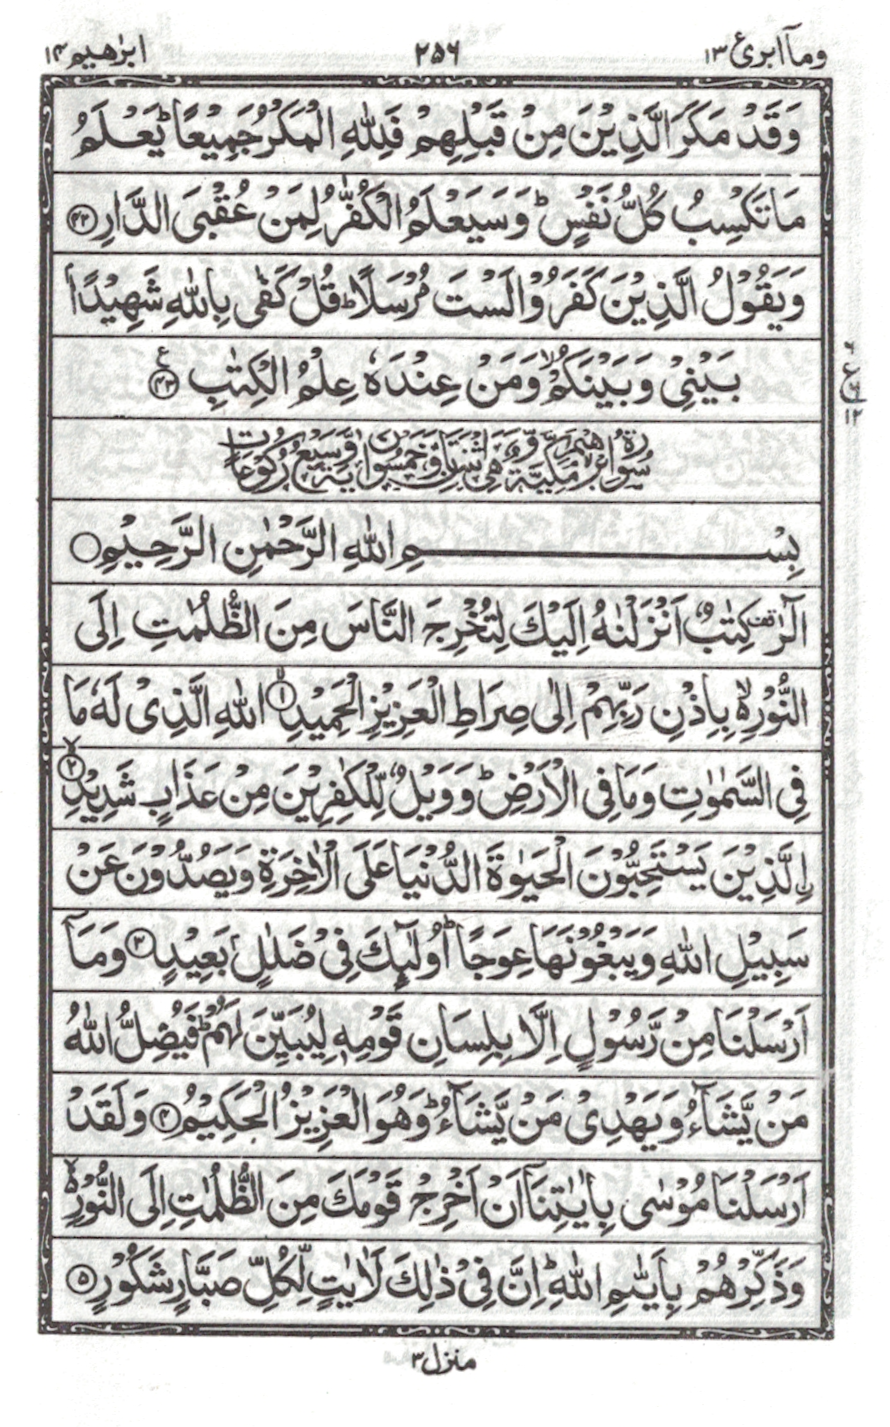 ابرٰهيم ١٤ ٢٥٦ ومآ ابرئ ١٣
وَقَدْ مَكَرَ الَّذِيْنَ مِنْ قَبْلِهِمْ فَلِلّٰهِ الْمَكْرُ جَمِيْعًا ؕ يَعْلَمُ
مَا تَكْسِبُ كُلُّ نَفْسٍ ؕ وَسَيَعْلَمُ الْكُفّٰرُ لِمَنْ عُقْبَى الدَّارِ ﴿۴۲﴾
وَيَقُوْلُ الَّذِيْنَ كَفَرُوْا لَسْتَ مُرْسَلًا ؕ قُلْ كَفٰى بِاللّٰهِ شَهِيْدًاۢ
بَيْنِىْ وَبَيْنَكُمْ ۙ وَمَنْ عِنْدَهٗ عِلْمُ الْكِتٰبِ ﴿۴۳﴾ ع
سُوْرَةُ اِبْرٰهِيْمَ مَكِّيَّةٌ وَّهِىَ اثْنَتَانِ وَخَمْسُوْنَ اٰيَةً وَّسَبْعُ رُكُوْعَاتٍ
بِسْمِ اللّٰهِ الرَّحْمٰنِ الرَّحِيْمِ
الٓرٰ ۟ كِتٰبٌ اَنْزَلْنٰهُ اِلَيْكَ لِتُخْرِجَ النَّاسَ مِنَ الظُّلُمٰتِ اِلَى
النُّوْرِ ۙ بِاِذْنِ رَبِّهِمْ اِلٰى صِرَاطِ الْعَزِيْزِ الْحَمِيْدِ ﴿۱﴾ اللّٰهِ الَّذِىْ لَهٗ مَا
فِى السَّمٰوٰتِ وَمَا فِى الْاَرْضِ ؕ وَوَيْلٌ لِّلْكٰفِرِيْنَ مِنْ عَذَابٍ شَدِيْدِ ﴿۲﴾
ۙاۨلَّذِيْنَ يَسْتَحِبُّوْنَ الْحَيٰوةَ الدُّنْيَا عَلَى الْاٰخِرَةِ وَيَصُدُّوْنَ عَنْ
سَبِيْلِ اللّٰهِ وَيَبْغُوْنَهَا عِوَجًا ؕ اُولٰٓئِكَ فِىْ ضَلٰلٍۢ بَعِيْدٍ ﴿۳﴾ وَمَآ
اَرْسَلْنَا مِنْ رَّسُوْلٍ اِلَّا بِلِسَانِ قَوْمِهٖ لِيُبَيِّنَ لَهُمْ ؕ فَيُضِلُّ اللّٰهُ
مَنْ يَّشَآءُ وَيَهْدِىْ مَنْ يَّشَآءُ ؕ وَهُوَ الْعَزِيْزُ الْحَكِيْمُ ﴿۴﴾ وَلَقَدْ
اَرْسَلْنَا مُوْسٰى بِاٰيٰتِنَاۤ اَنْ اَخْرِجْ قَوْمَكَ مِنَ الظُّلُمٰتِ اِلَى النُّوْرِ ۙ
وَذَكِّرْهُمْ بِاَيّٰىمِ اللّٰهِ ؕ اِنَّ فِىْ ذٰلِكَ لَاٰيٰتٍ لِّكُلِّ صَبَّارٍ شَكُوْرٍ ﴿۵﴾
منزل ۳